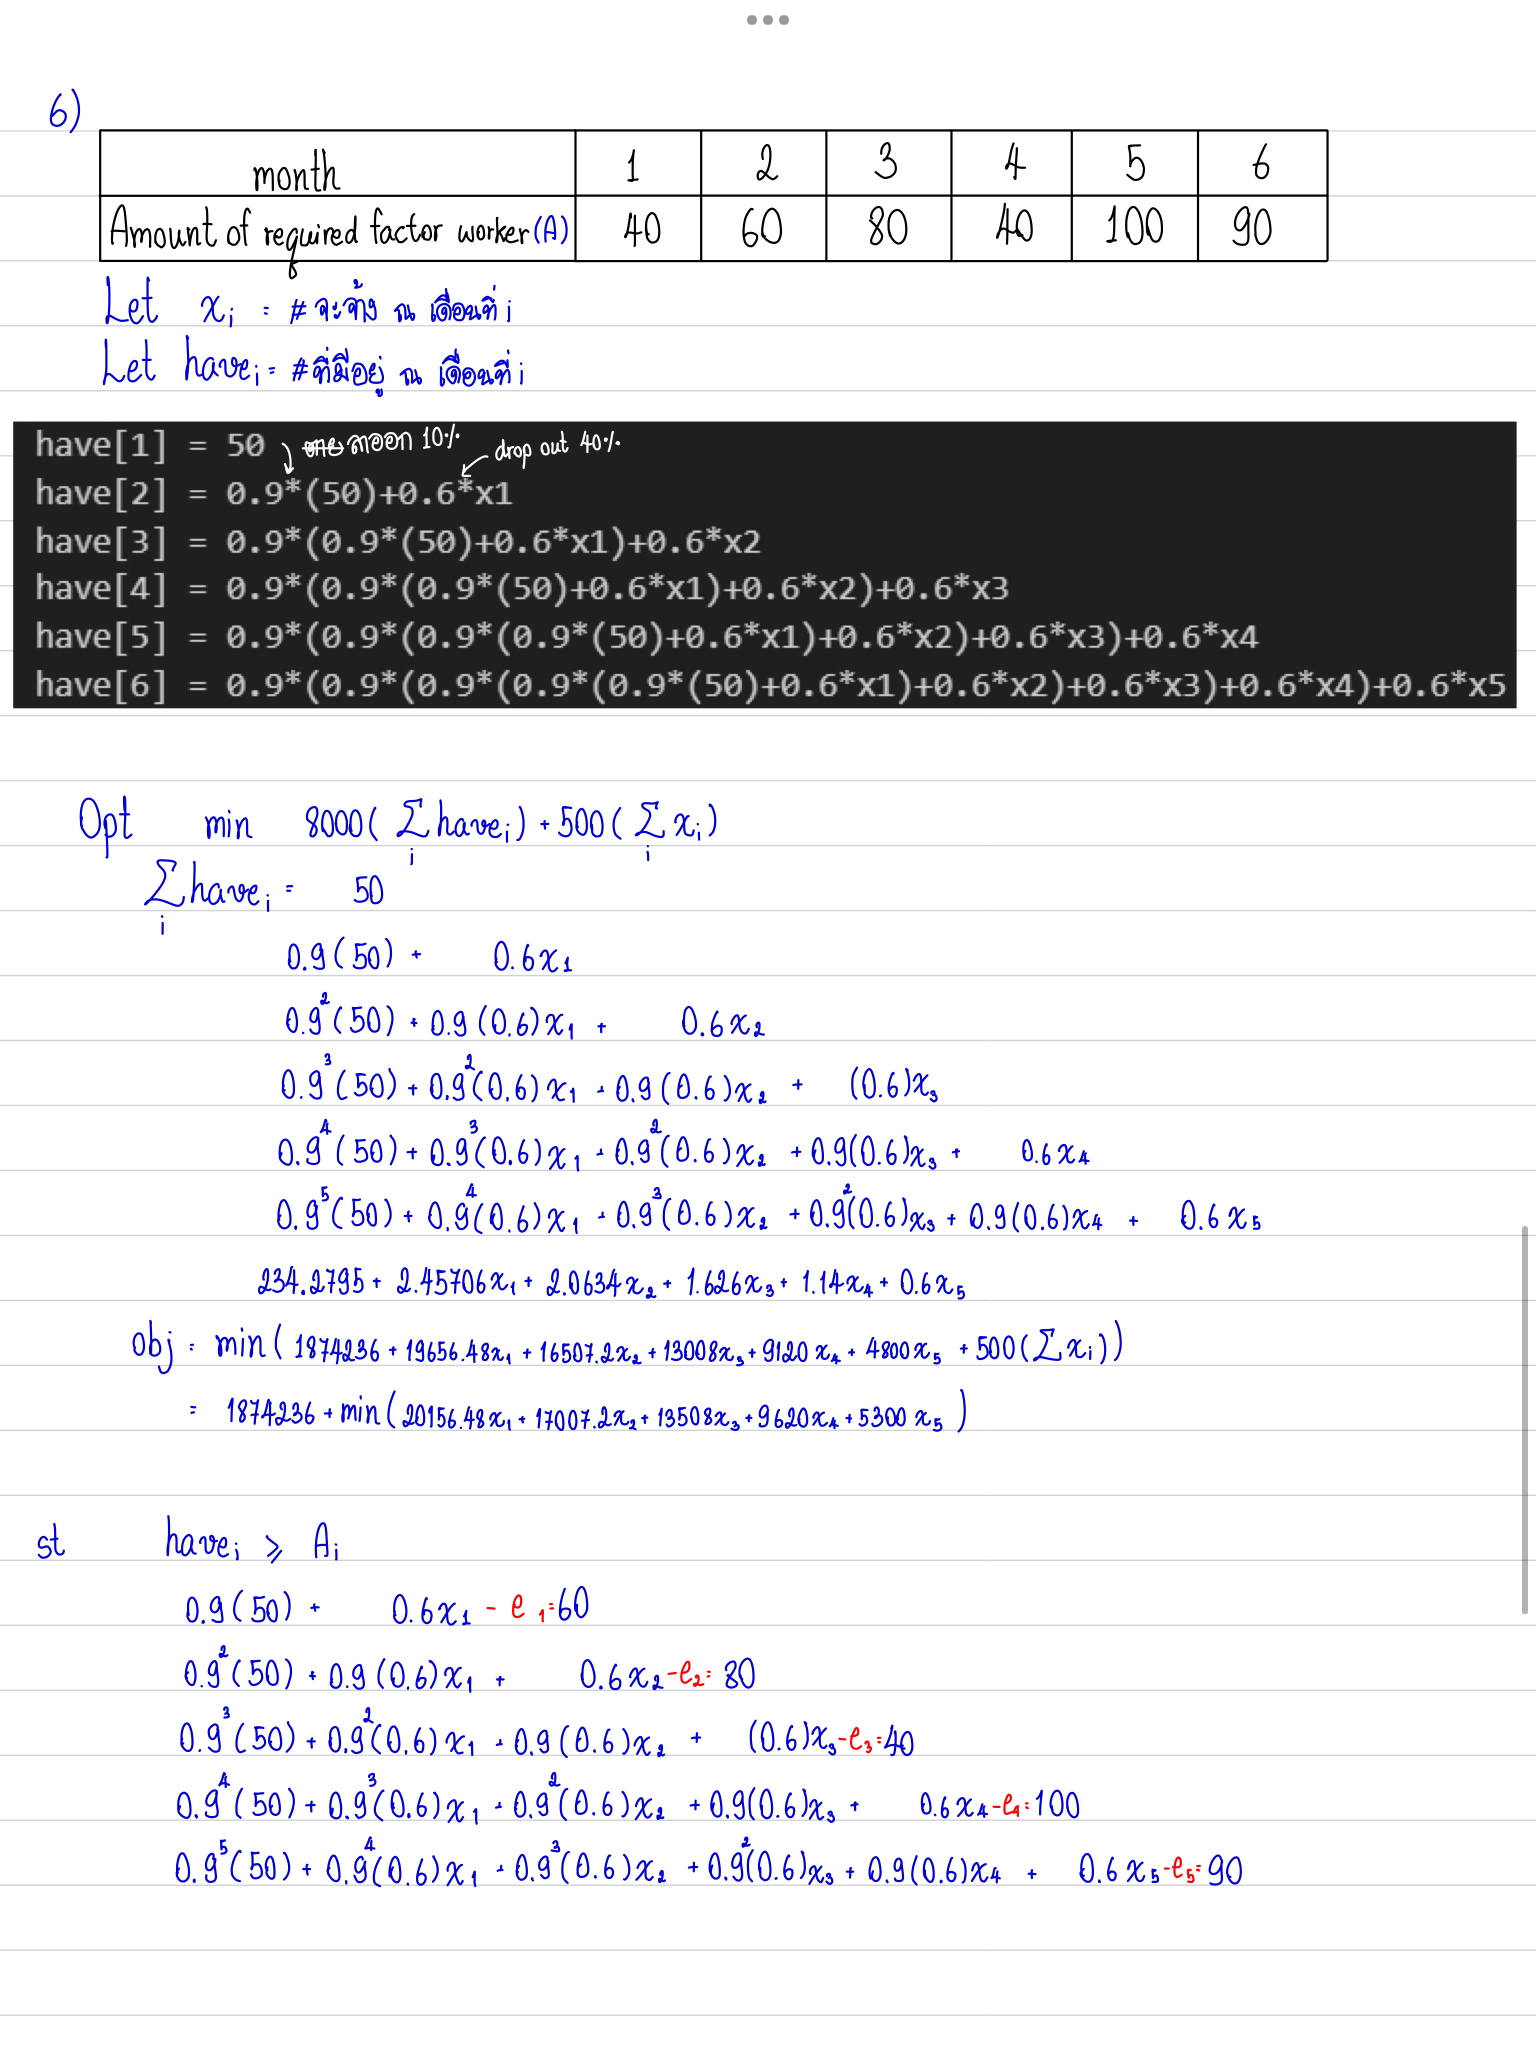 6)
month 1 2 3 4 5 6
Amount of required factor worker (A) 40 60 80 40 100 90
Let xᵢ = # จะจ้าง ณ เดือนที่ i
Let haveᵢ = # ที่มีอยู่ ณ เดือนที่ i
have[1] = 50 ลาออก 10% drop out 40%
have[2] = 0.9*(50)+0.6*x1
have[3] = 0.9*(0.9*(50)+0.6*x1)+0.6*x2
have[4] = 0.9*(0.9*(0.9*(50)+0.6*x1)+0.6*x2)+0.6*x3
have[5] = 0.9*(0.9*(0.9*(0.9*(50)+0.6*x1)+0.6*x2)+0.6*x3)+0.6*x4
have[6] = 0.9*(0.9*(0.9*(0.9*(0.9*(50)+0.6*x1)+0.6*x2)+0.6*x3)+0.6*x4)+0.6*x5
Opt min 8000(∑ᵢ haveᵢ) + 500(∑ᵢ xᵢ)
∑ᵢ haveᵢ = 50
0.9(50) + 0.6x₁
0.9²(50) + 0.9(0.6)x₁ + 0.6x₂
0.9³(50) + 0.9²(0.6)x₁ + 0.9(0.6)x₂ + (0.6)x₃
0.9⁴(50) + 0.9³(0.6)x₁ + 0.9²(0.6)x₂ + 0.9(0.6)x₃ + 0.6x₄
0.9⁵(50) + 0.9⁴(0.6)x₁ + 0.9³(0.6)x₂ + 0.9²(0.6)x₃ + 0.9(0.6)x₄ + 0.6x₅
234.2795 + 2.45706x₁ + 2.0634x₂ + 1.626x₃ + 1.14x₄ + 0.6x₅
obj = min(1874236 + 19656.48x₁ + 16507.2x₂ + 13008x₃ + 9120x₄ + 4800x₅ + 500(∑xᵢ))
= 1874236 + min(20156.48x₁ + 17007.2x₂ + 13508x₃ + 9620x₄ + 5300x₅)
st haveᵢ ⩾ Aᵢ
0.9(50) + 0.6x₁ - e₁ = 60
0.9²(50) + 0.9(0.6)x₁ + 0.6x₂ - e₂ = 80
0.9³(50) + 0.9²(0.6)x₁ + 0.9(0.6)x₂ + (0.6)x₃ - e₃ = 40
0.9⁴(50) + 0.9³(0.6)x₁ + 0.9²(0.6)x₂ + 0.9(0.6)x₃ + 0.6x₄ - e₄ = 100
0.9⁵(50) + 0.9⁴(0.6)x₁ + 0.9³(0.6)x₂ + 0.9²(0.6)x₃ + 0.9(0.6)x₄ + 0.6x₅ - e₅ = 90